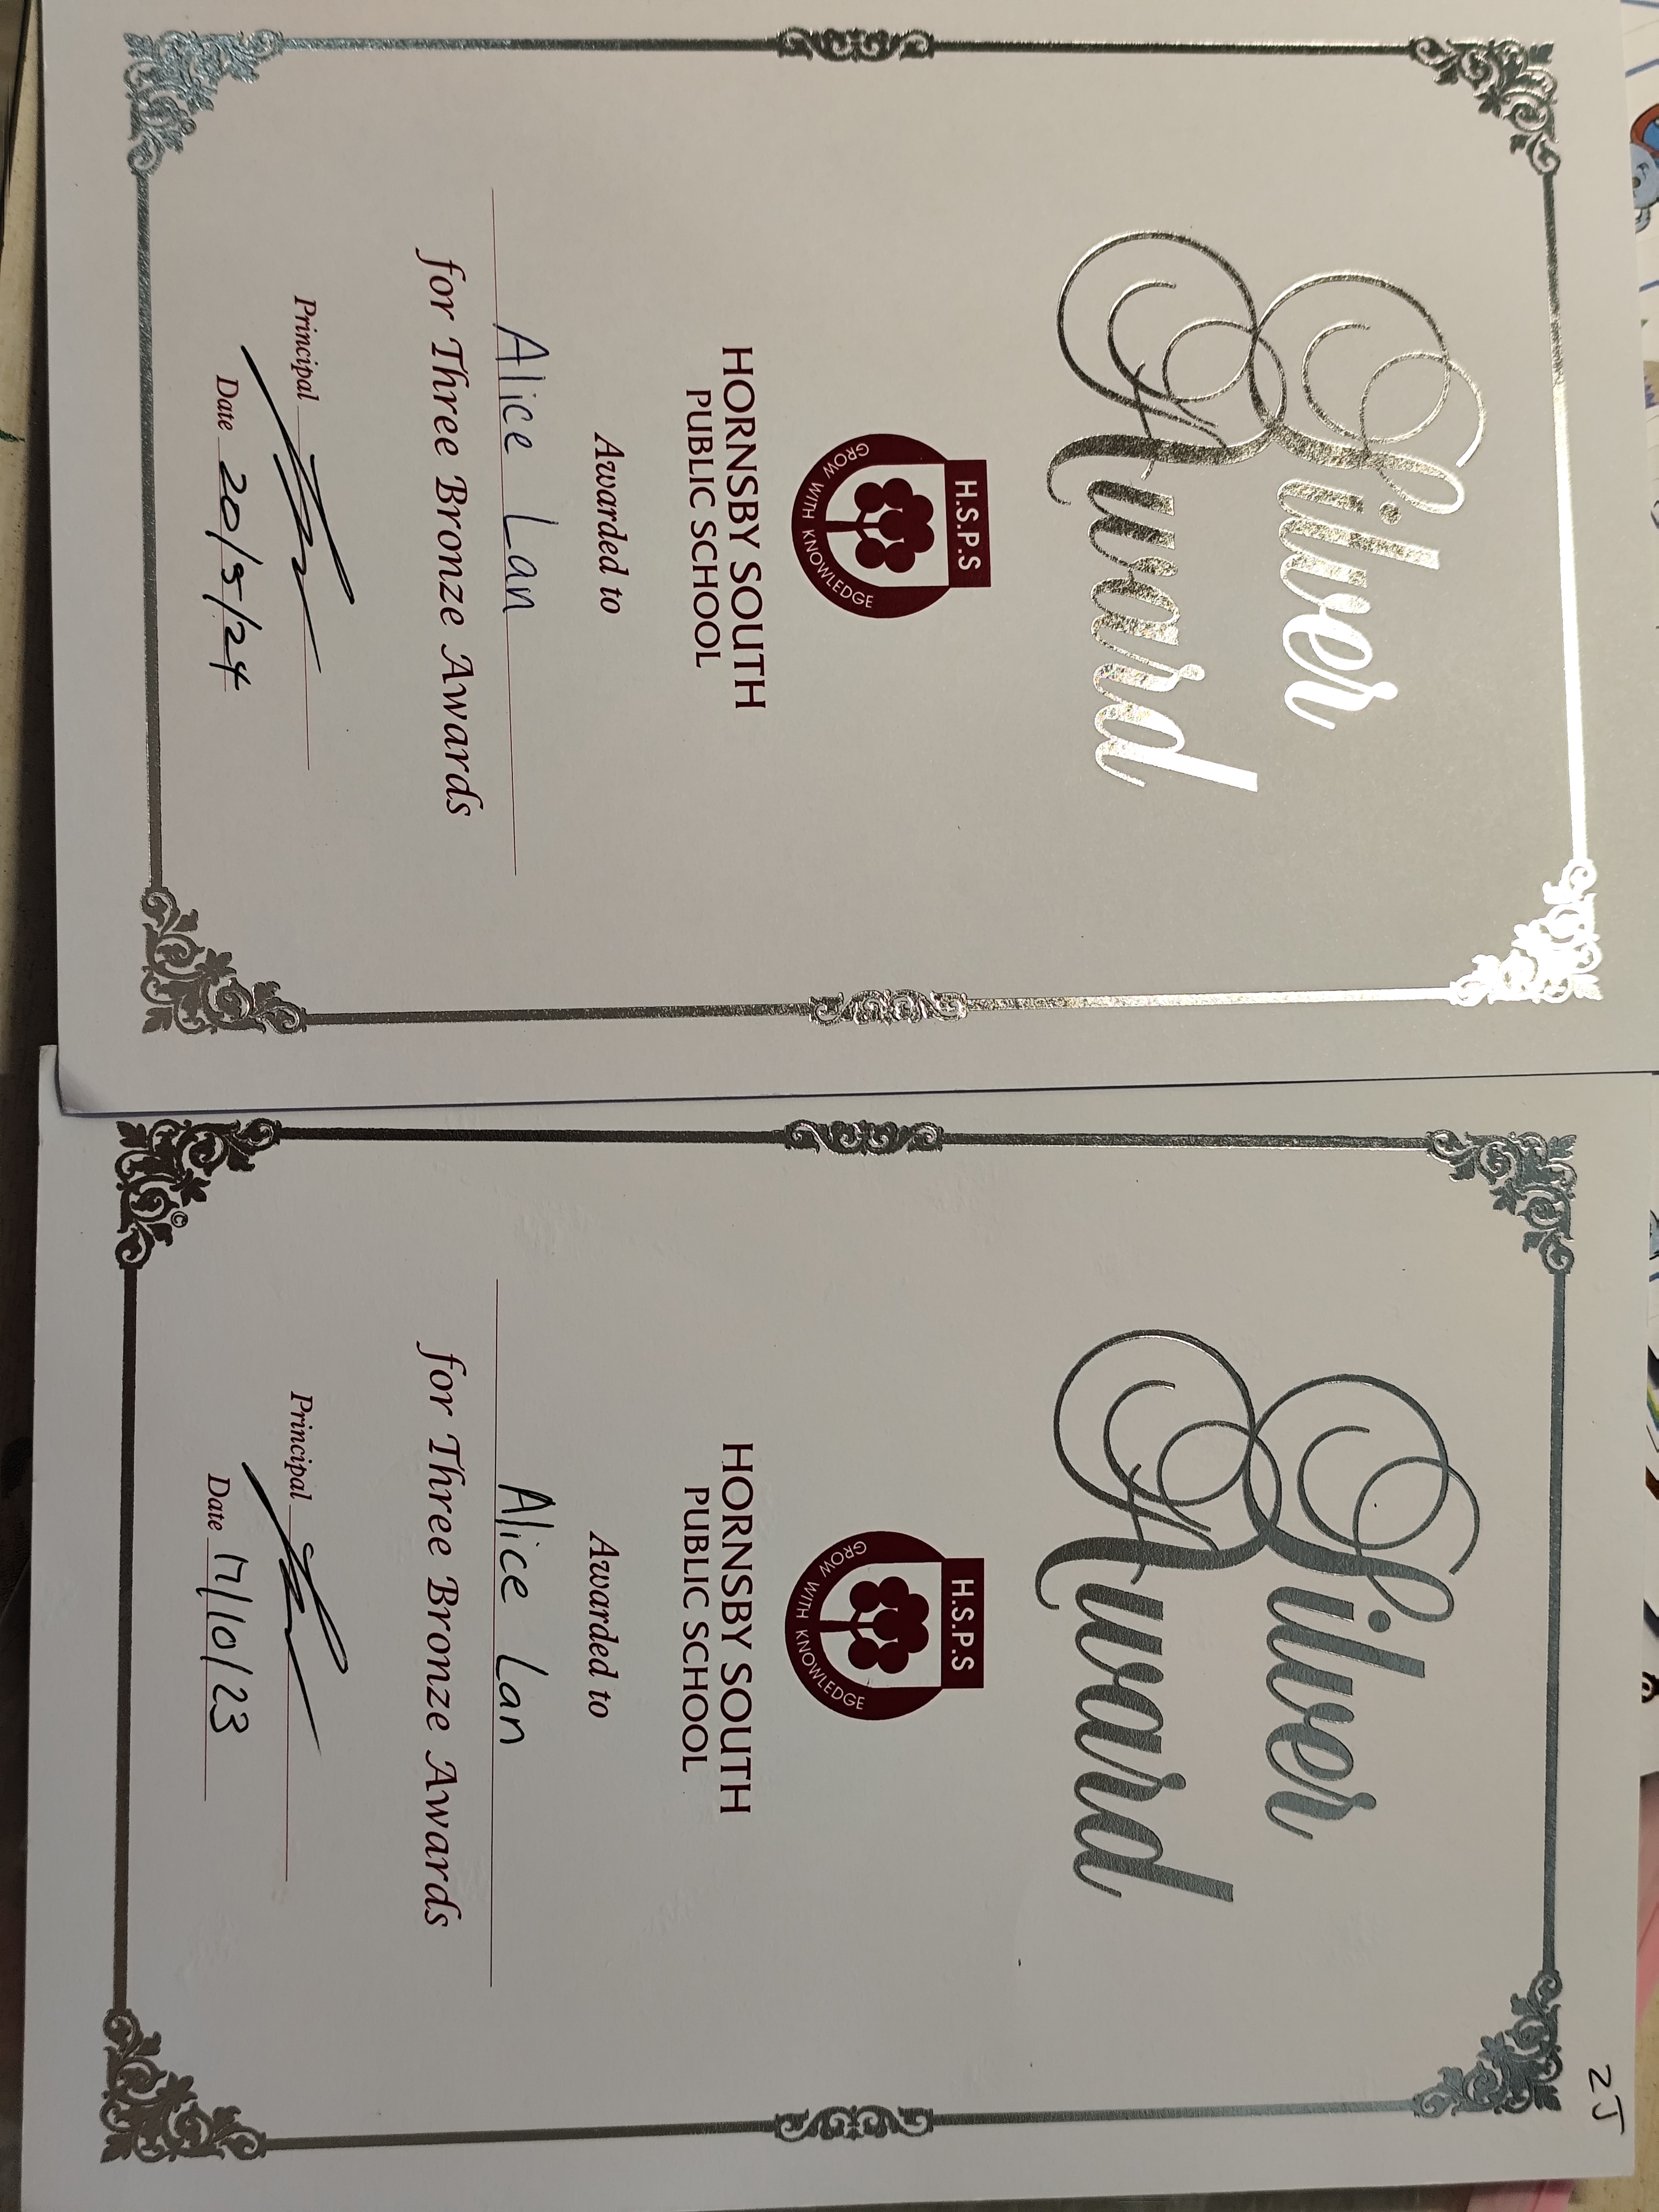 Silver
Award
H.S.P.S
GROW WITH KNOWLEDGE
HORNSBY SOUTH
PUBLIC SCHOOL
Awarded to
Alice Lan
for Three Bronze Awards
Principal
Date 20/5/24
2J
Silver
Award
H.S.P.S
GROW WITH KNOWLEDGE
HORNSBY SOUTH
PUBLIC SCHOOL
Awarded to
Alice Lan
for Three Bronze Awards
Principal
Date 17/10/23
©